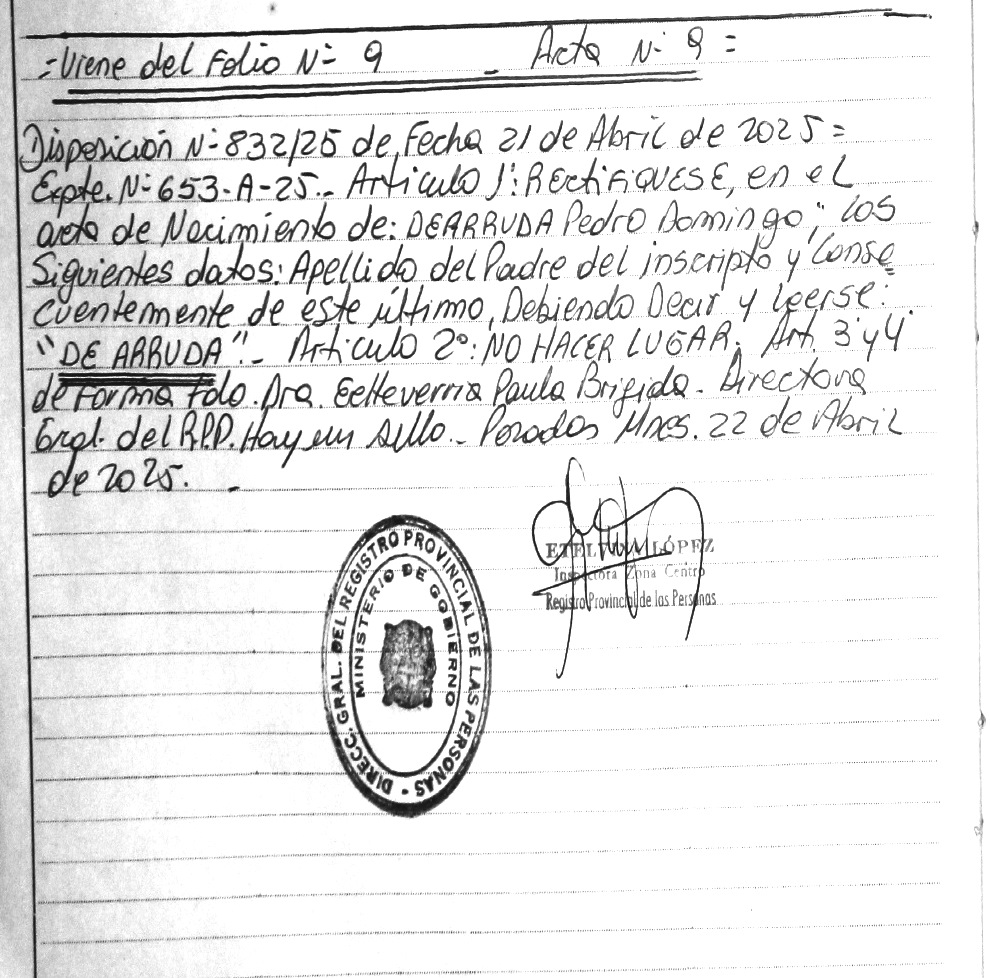 =Viene del Folio Nº 9 _ Acta Nº 9 =
Disposición Nº 832/25 de Fecha 21 de Abril de 2025 =
Expte. Nº 653-A-25.- Artículo 1º: RECTIFIQUESE, en el
acta de Nacimiento de: DEARRUDA Pedro Domingo; los
Siguientes datos: Apellido del Padre del inscripto y Conse
cuentemente de este último, Debiendo Decir y Leerse:
"DE ARRUDA".- Artículo 2º: NO HACER LUGAR. Art. 3º y 4º
de Forma Fdo. Dra. Echeverria Paula Brigida. Directora
Gral. del R.P.P. Hay un Sello.- Posadas Mnes. 22 de Abril
de 2025. -
ETELVINA LÓPEZ
Inspectora Zona Centro
Registro Provincial de las Personas
DIRECC. GRAL. DEL REGISTRO PROVINCIAL DE LAS PERSONAS -
MINISTERIO DE GOBIERNO